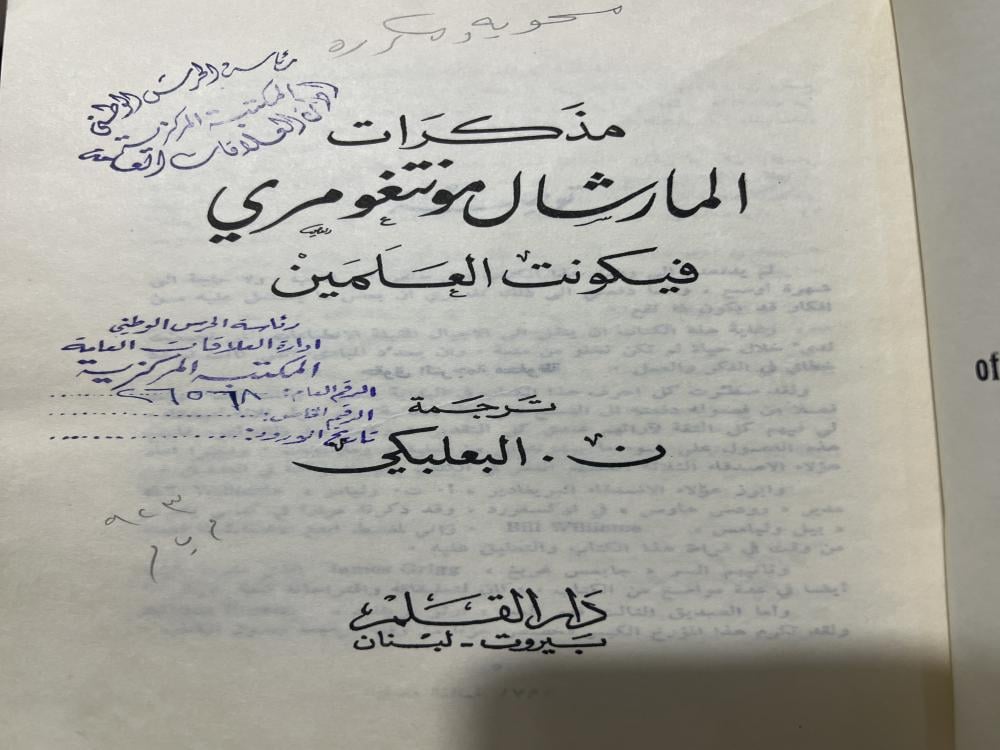 مكررة
رئاسة الحرس الوطني
المكتبة المركزية
إدارة العلاقات العامة
مذكرات
المارشال مونتغومري
فيكونت العلمين
رئاسة الحرس الوطني
ادارة العلاقات العامة
المكتبة المركزية
الرقم العام:
الرقم الخاص:
تاريخ الورود:
ترجمة
ن. البعلبكي
٩٢٣
دار القلم
بيروت - لبنان
of